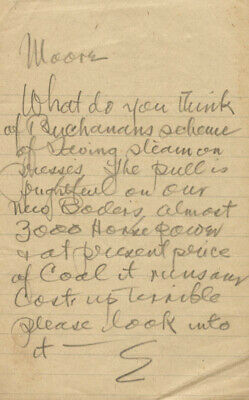 Moore
What do you think
of Buchanans scheme
of Saving steam on
presses, The pull is
frightful on our
new Boilers, almost
3000 Horse power
& at present price
of Coal it runs our
Cost up terrible
please look into
it — E